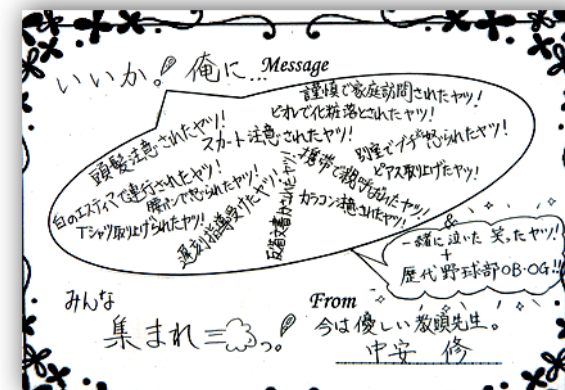 いいか。俺に...
Message
謹慎で家庭訪問されたヤツ!
ビオレで化粧落とされたヤツ!
頭髪注意されたヤツ!
スカート注意されたヤツ!
別室でブチ怒られたヤツ!
白のエスティマで連行されたヤツ!
腰パンで怒られたヤツ!
携帯で親呼ばれたヤツ!
ピアス取り上げたヤツ!
Tシャツ取り上げられたヤツ!
遅刻指導受けたヤツ!
反省文書かされたヤツ!
カラコン注意されたヤツ!
&
一緒に泣いた 笑ったヤツ!
+
歴代野球部OB・OG!!
みんな
集まれ っ。
From
今は優しい教頭先生。
中安 修